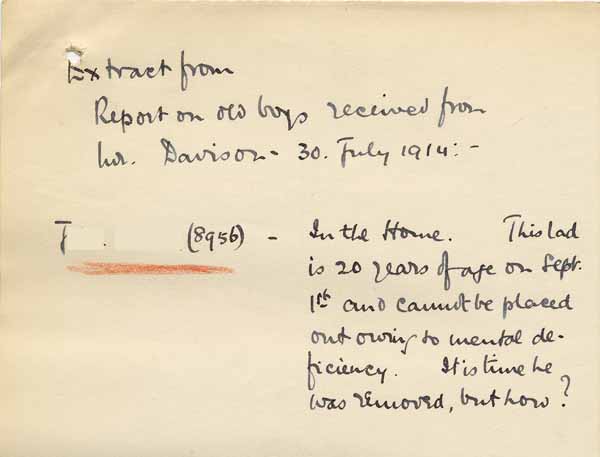 Extract from
Report on old boys received from
Mr. Davison - 30. July 1914: -
J (8956) - In the Home. This lad
is 20 years of age on Sept.
1st and cannot be placed
out owing to mental de-
ficiency. It is time he
was removed, but how?